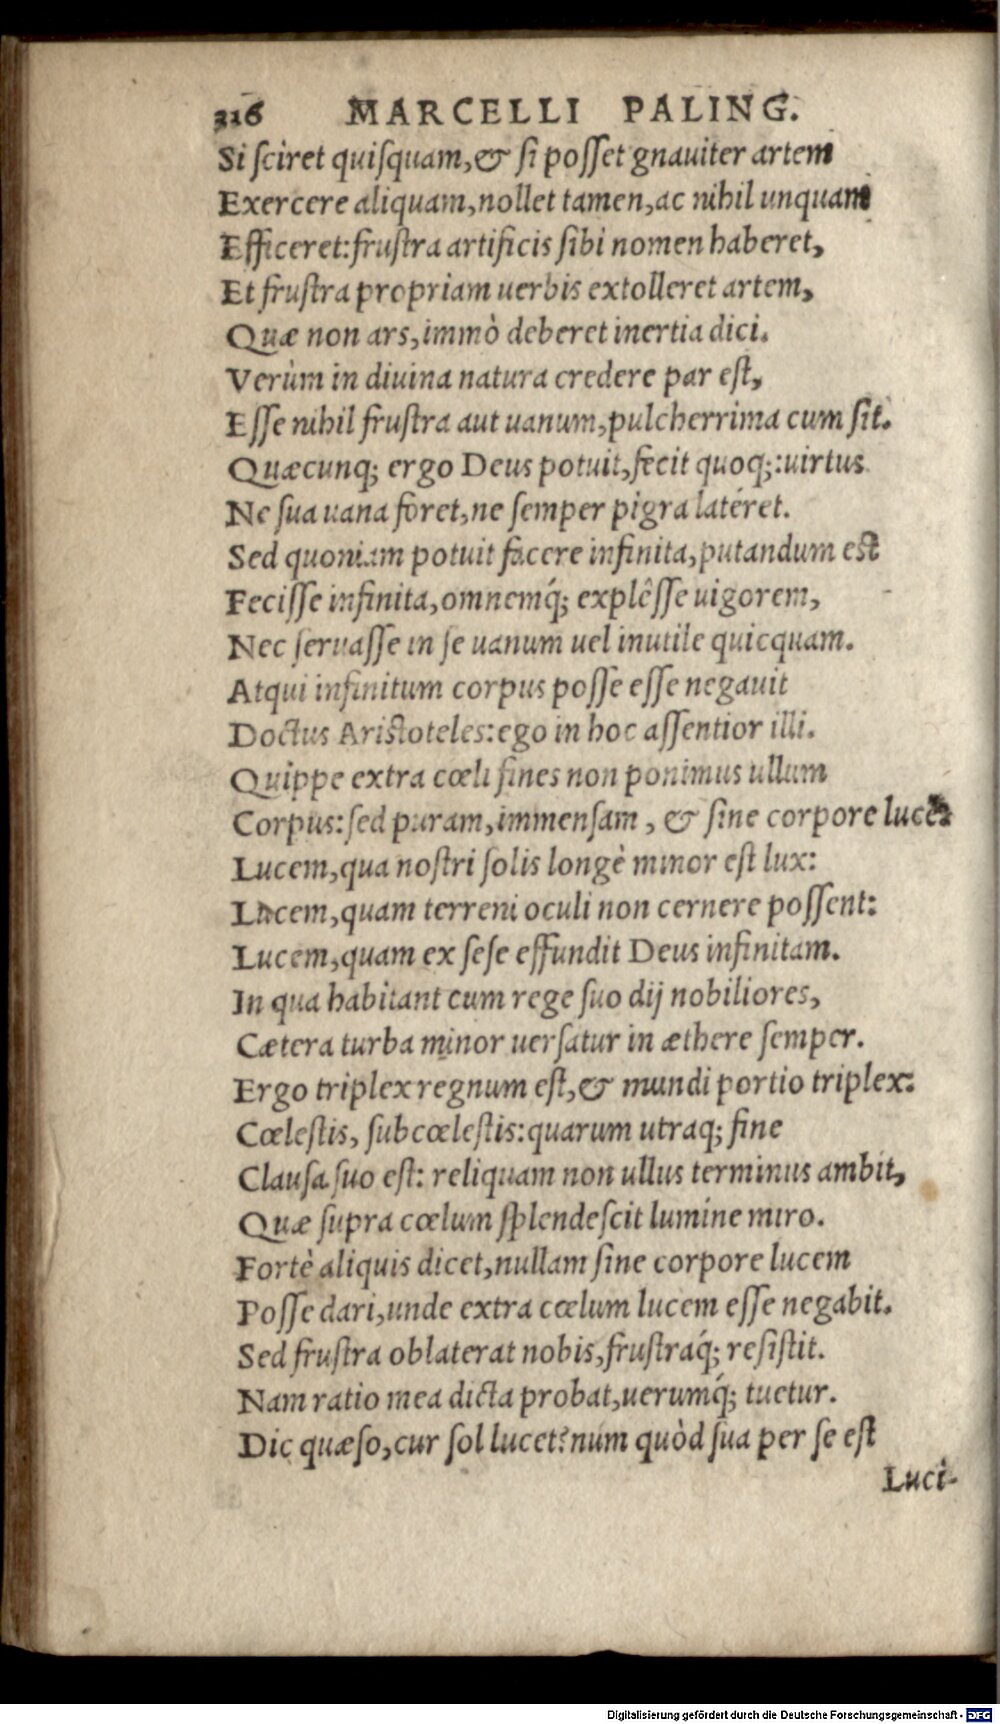 316 MARCELLI PALING.
Si sciret quisquam,& si posset gnauiter artem
Exercere aliquam,nollet tamen,ac nihil unquam
Efficeret:frustra artificis sibi nomen haberet,
Et frustra propriam uerbis extolleret artem,
Quæ non ars,immò deberet inertia dici.
Verùm in diuina natura credere par est,
Esse nihil frustra aut uanum,pulcherrima cum sit.
Quæcunq; ergo Deus potuit,fecit quoq;:uirtus
Ne sua uana foret,ne semper pigra lateret.
Sed quoniam potuit facere infinita,putandum est
Fecisse infinita,omnemq́; explêsse uigorem,
Nec seruasse in se uanum uel inutile quicquam.
Atqui infinitum corpus posse esse negauit
Doctus Aristoteles:ego in hoc assentior illi.
Quippe extra cœli fines non ponimus ullum
Corpus:sed puram,immensam, & sine corpore lucē.
Lucem,qua nostri solis longè minor est lux:
Lucem,quam terreni oculi non cernere possent:
Lucem,quam ex sese effundit Deus infinitam.
In qua habitant cum rege suo dij nobiliores,
Cætera turba minor uersatur in æthere semper.
Ergo triplex regnum est,& mundi portio triplex:
Cœlestis, subcœlestis:quarum utraq; fine
Clausa suo est: reliquam non ullus terminus ambit,
Quæ supra cœlum splendescit lumine miro.
Fortè aliquis dicet,nullam sine corpore lucem
Posse dari,unde extra cœlum lucem esse negabit.
Sed frustra oblaterat nobis,frustraq́; resistit.
Nam ratio mea dicta probat,uerumq́; tuetur.
Dic quæso,cur sol lucet?num quòd sua per se est
Luci-
Digitalisierung gefördert durch die Deutsche Forschungsgemeinschaft - DFG